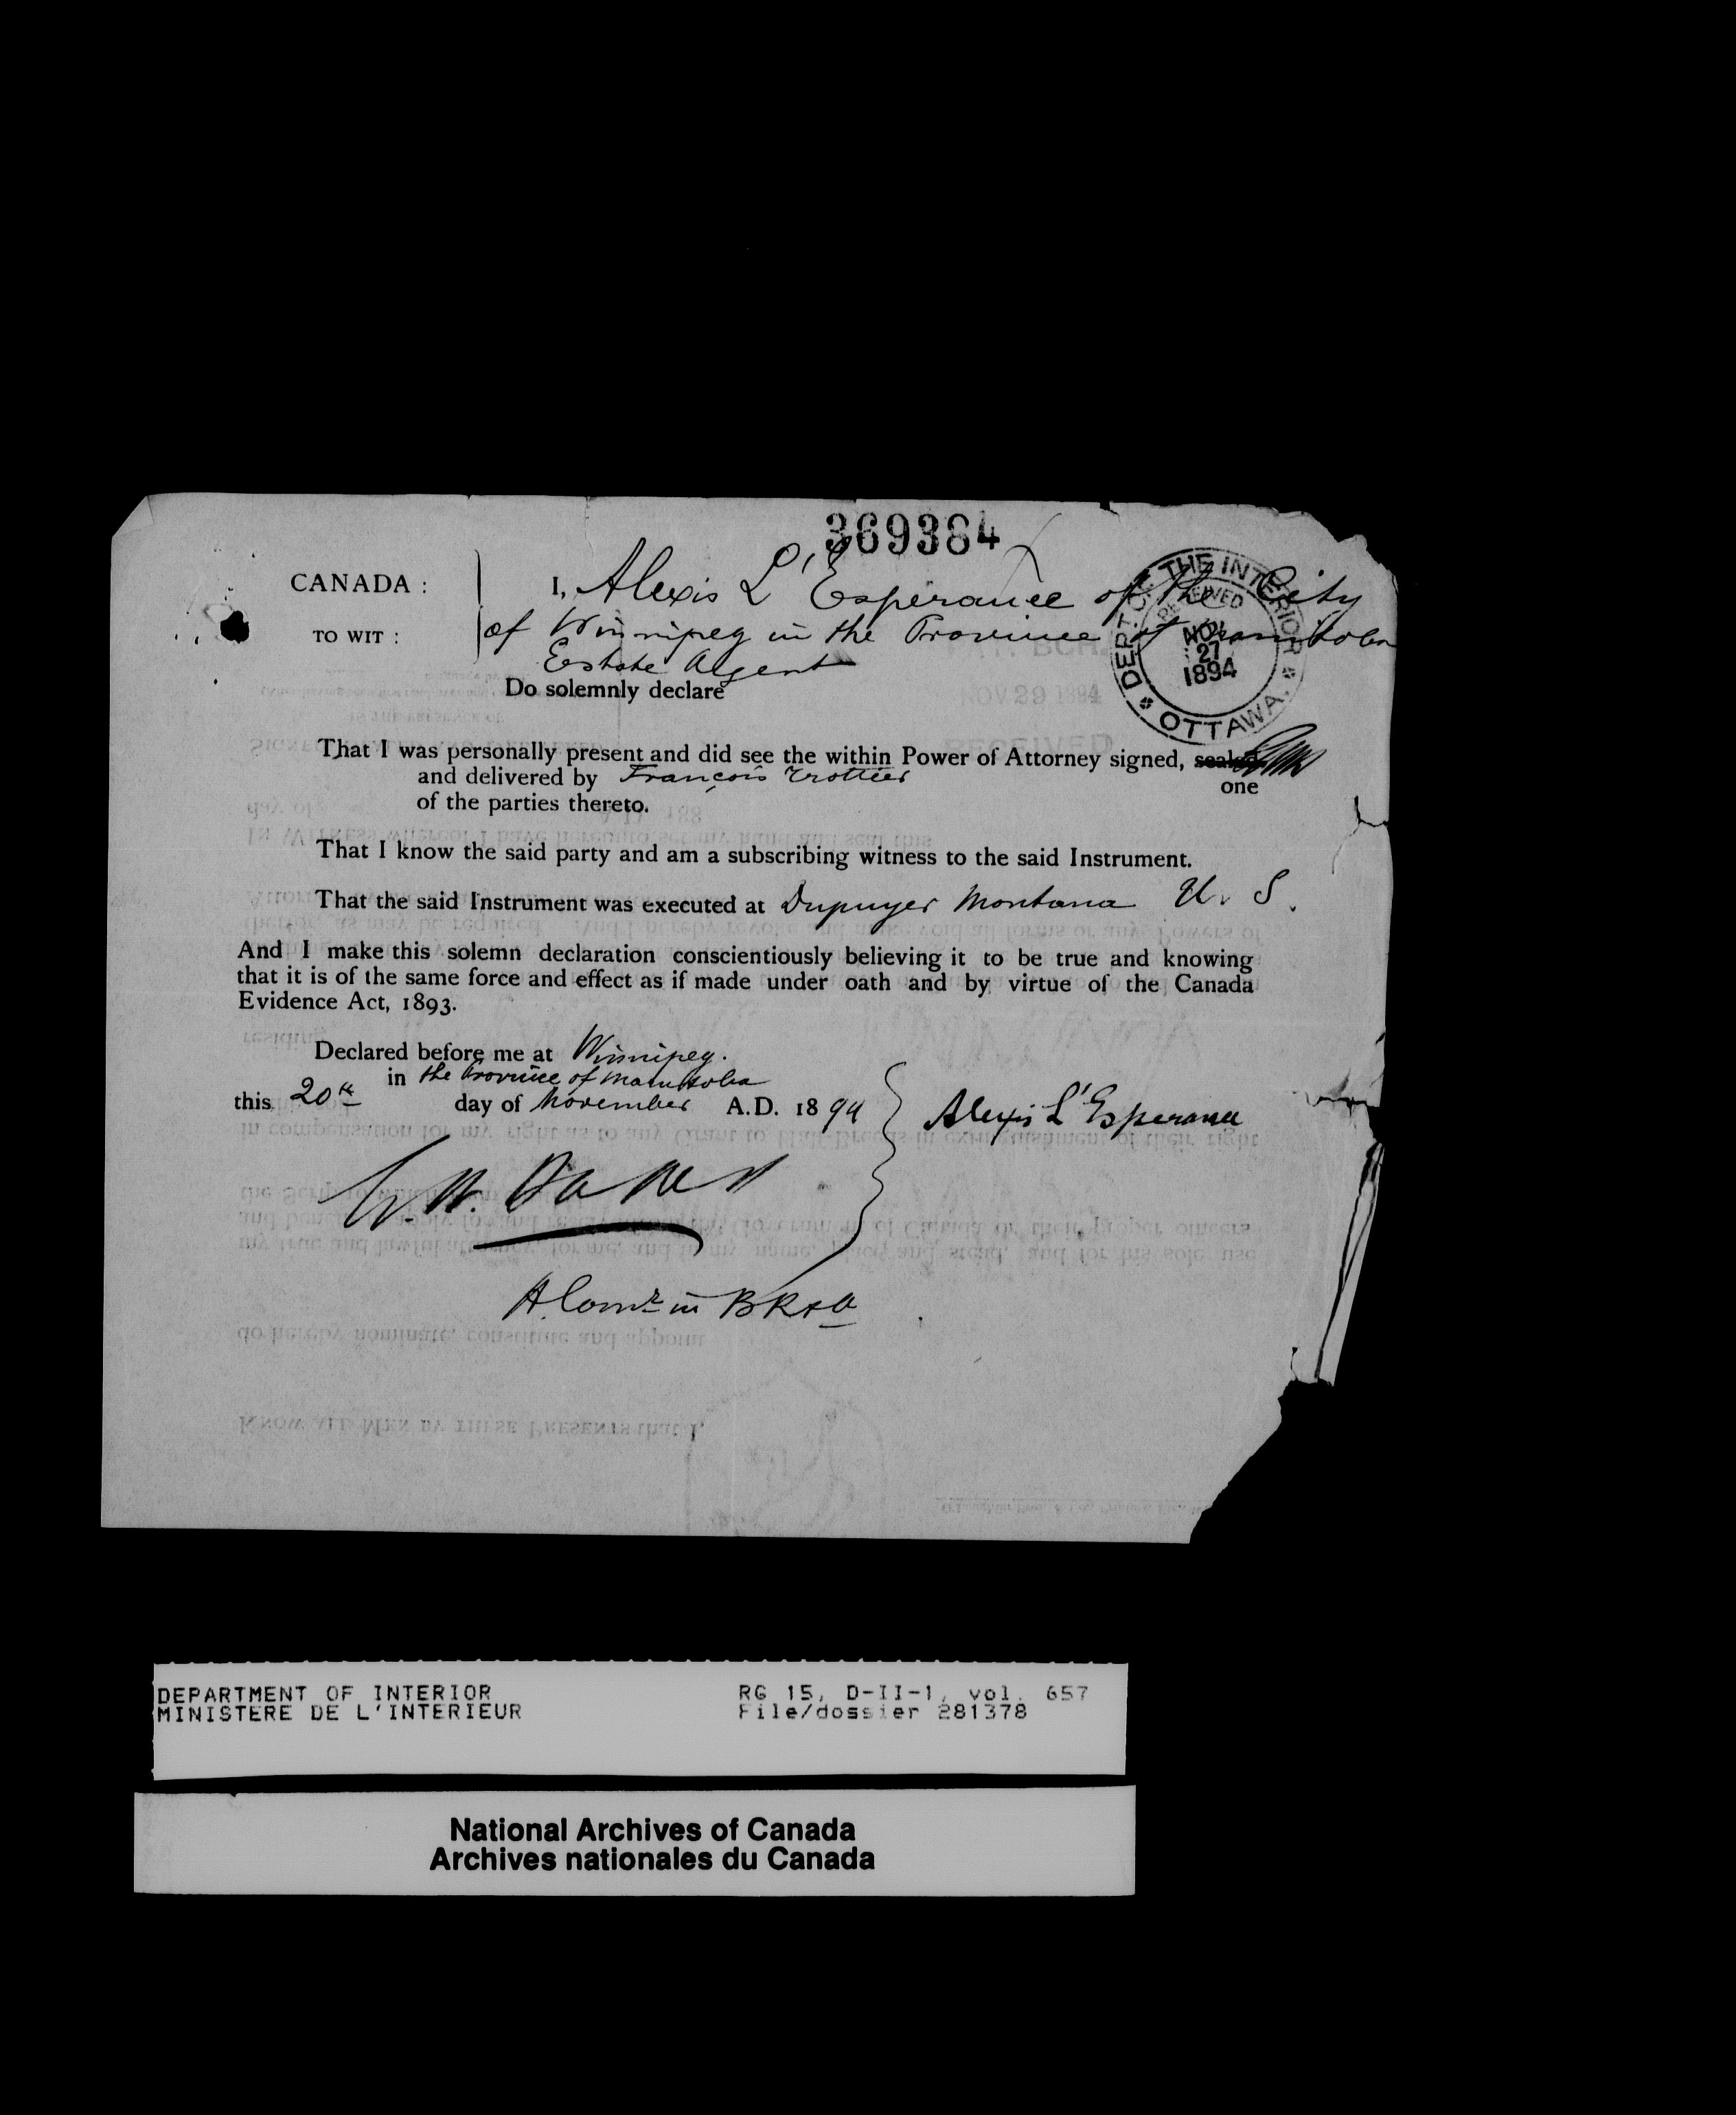 369384
CANADA :
TO WIT :
I, Alexis L'Esperance of the City
of Winnipeg in the Province of Manitoba
Estate Agent
Do solemnly declare
DEPT. OF THE INTERIOR
RECEIVED
NOV
27
1894
OTTAWA.
BCH.
NOV 29 1894
RECEIVED
That I was personally present and did see the within Power of Attorney signed, sealed
and delivered by François Trottier one
of the parties thereto.
That I know the said party and am a subscribing witness to the said Instrument.
That the said Instrument was executed at Dupuyer Montana U. S.
And I make this solemn declaration conscientiously believing it to be true and knowing
that it is of the same force and effect as if made under oath and by virtue of the Canada
Evidence Act, 1893.
Declared before me at Winnipeg.
in the Province of Manitoba
this 20th day of November A.D. 1894
Alexis L'Esperance
A Comr in BR
DEPARTMENT OF INTERIOR
MINISTERE DE L'INTERIEUR
RG 15, D-II-1, vol. 657
File/dossier 281378
National Archives of Canada
Archives nationales du Canada